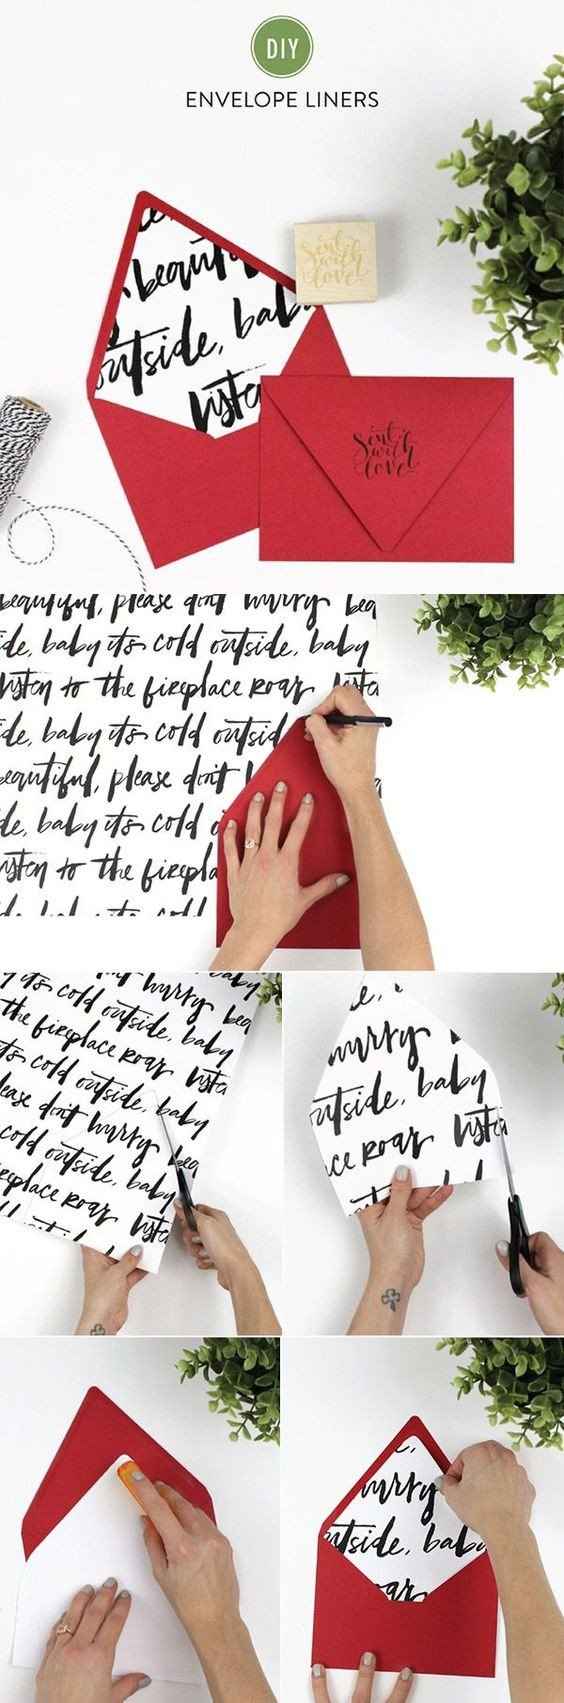 DIY
ENVELOPE LINERS
Sent
with
love
beauti
outside, bab
listen
Sent
with
love
beautiful, please don't hurry bea
ide, baby its cold outside, baby
listen to the fireplace roar liste
ide, baby its cold outsid
beautiful, please don't
de, baby its cold o
listen to the firepla
ide, baby its cold
hurry bea
ts cold outside, baby
the fireplace roar liste
ts cold outside, baby
ease don't hurry
cold outside, baby
eplace roar listen
hurry
utside, baby
ce roar listen
hurry
utside, baby
roar